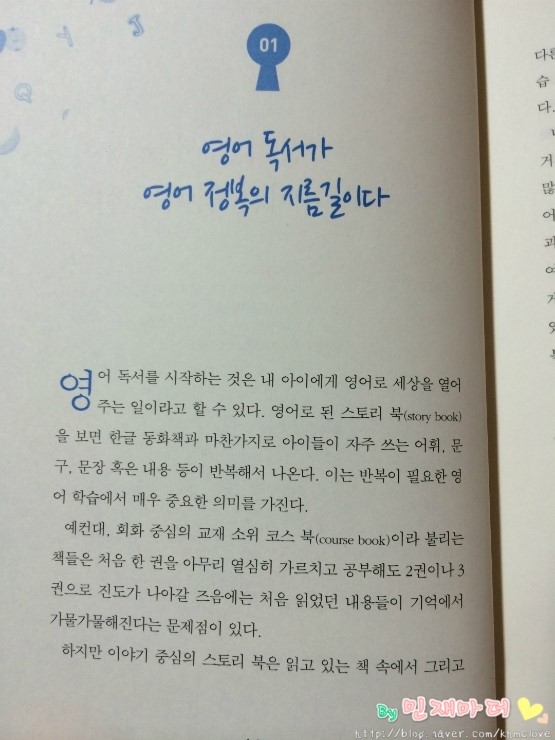 01
영어 독서가
영어 정복의 지름길이다
영어 독서를 시작하는 것은 내 아이에게 영어로 세상을 열어
주는 일이라고 할 수 있다. 영어로 된 스토리 북(story book)
을 보면 한글 동화책과 마찬가지로 아이들이 자주 쓰는 어휘, 문
구, 문장 혹은 내용 등이 반복해서 나온다. 이는 반복이 필요한 영
어 학습에서 매우 중요한 의미를 가진다.
예컨대, 회화 중심의 교재 소위 코스 북(course book)이라 불리는
책들은 처음 한 권을 아무리 열심히 가르치고 공부해도 2권이나 3
권으로 진도가 나아갈 즈음에는 처음 읽었던 내용들이 기억에서
가물가물해진다는 문제점이 있다.
하지만 이야기 중심의 스토리 북은 읽고 있는 책 속에서 그리고
다른
습
다.
거
많
어
과
여
By 민재마더
http://blog.naver.com/khmclove